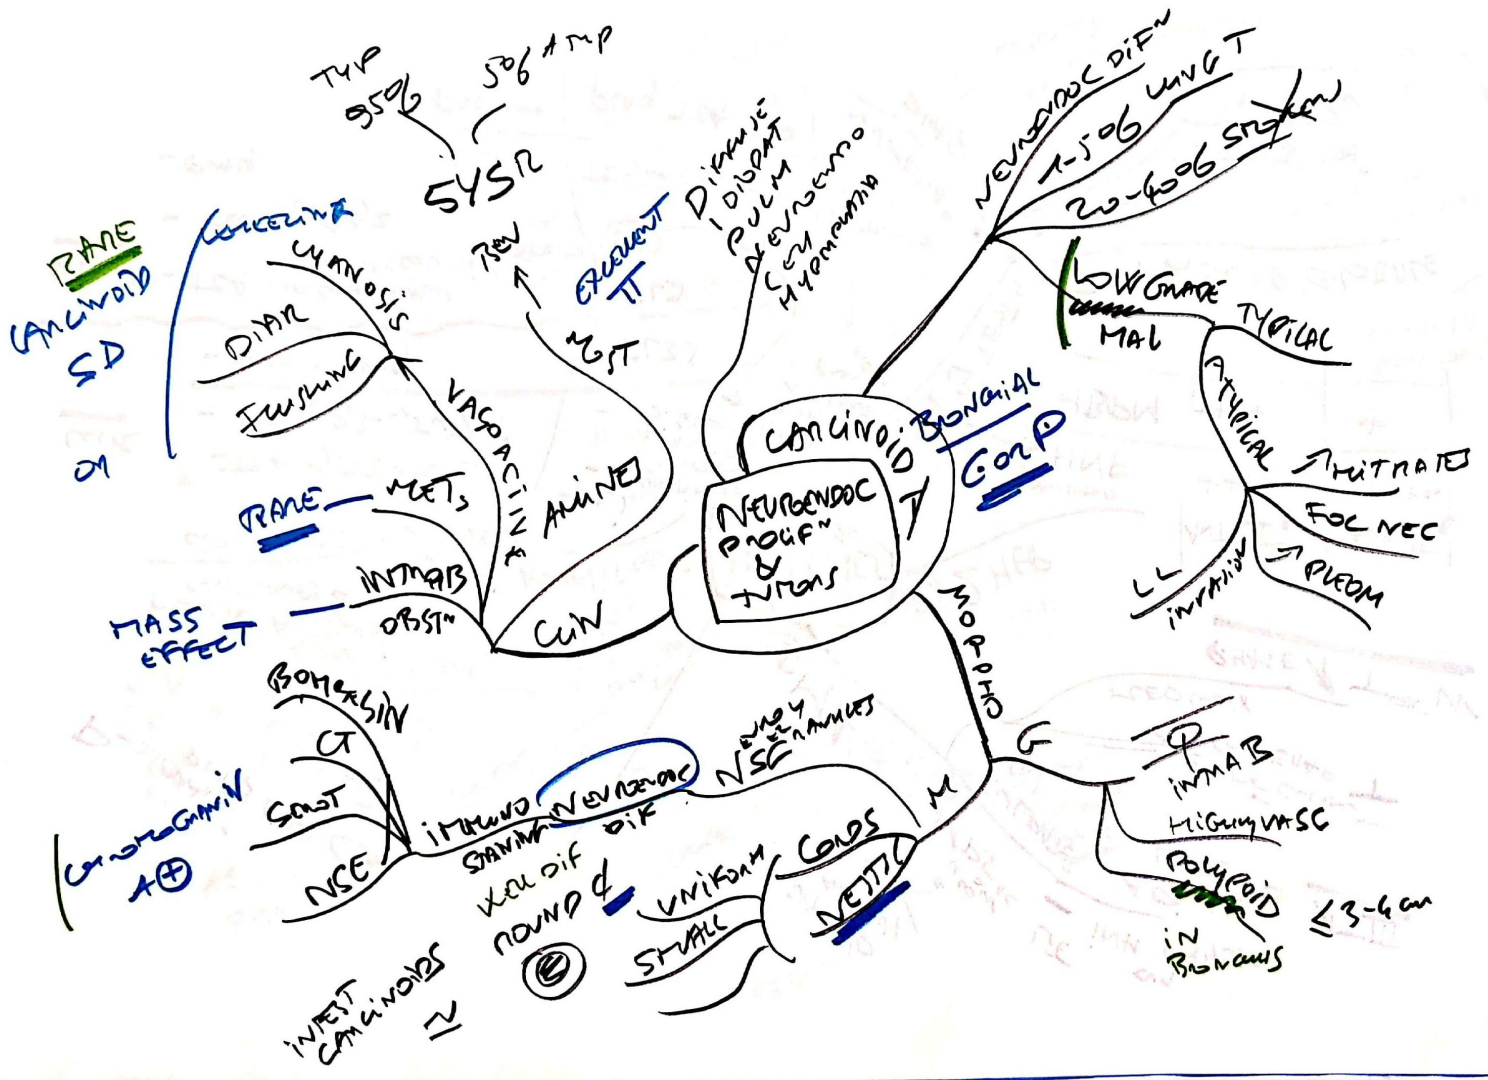 NEUROENDOC
PROLIFᴺ
&
TUMORS
CARCINOID T
BRONCHIAL
NEUROENDOC DIFᴺ
1-5% LUNG T
20-40% SMOKERS
LOW GRADE
MAL
TYPICAL
ATYPICAL
↗ MITRATES
FOC NEC
↗ PLEOM
LL
INVASION
MORPHO
G
INTRAB
HIGHLY VASC
POLYPOID
IN
BRONCHUS
≤ 3-4 cm
M
CORDS
NESTS
UNIFORM
SMALL
ROUND
NSG
NEURO
GRANULES
NEUROENDOC
DIF
IMMUNO
STAINING
BOMBESIN
CT
SEROT
NSE
CHROMOGRANIN
A ⊕
WELL DIF
INTEST
CARCINOIDS
≈
CLIN
INTRAB
OBSTᴺ
MASS
EFFECT
METS
RARE
VASOACTIVE
AMINES
FLUSHING
DIAR
CYANOSIS
WHEEZING
RARE
CARCINOID
SD
MST
BEN
5YSR
TYP
95%
EXCELLENT
π
DIFFUSE
IDIOPAT
PULM
NEUROENDO
CELL
HYPERPLASIA